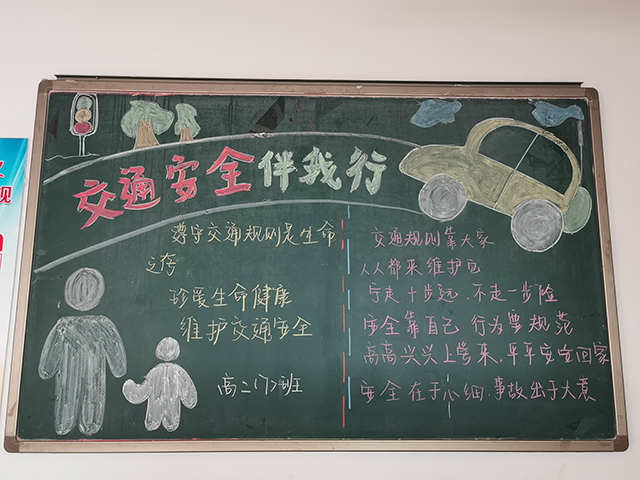 交通安全伴我行
遵守交通规则是生命
之夸
珍爱生命健康
维护交通安全
高二(7)班
交通规则靠大家
人人都来维护它
宁走十步远，不走一步险
安全靠自己 行为要规范
高高兴兴上学来，平平安安回家
安全在于心细，事故出于大意
规